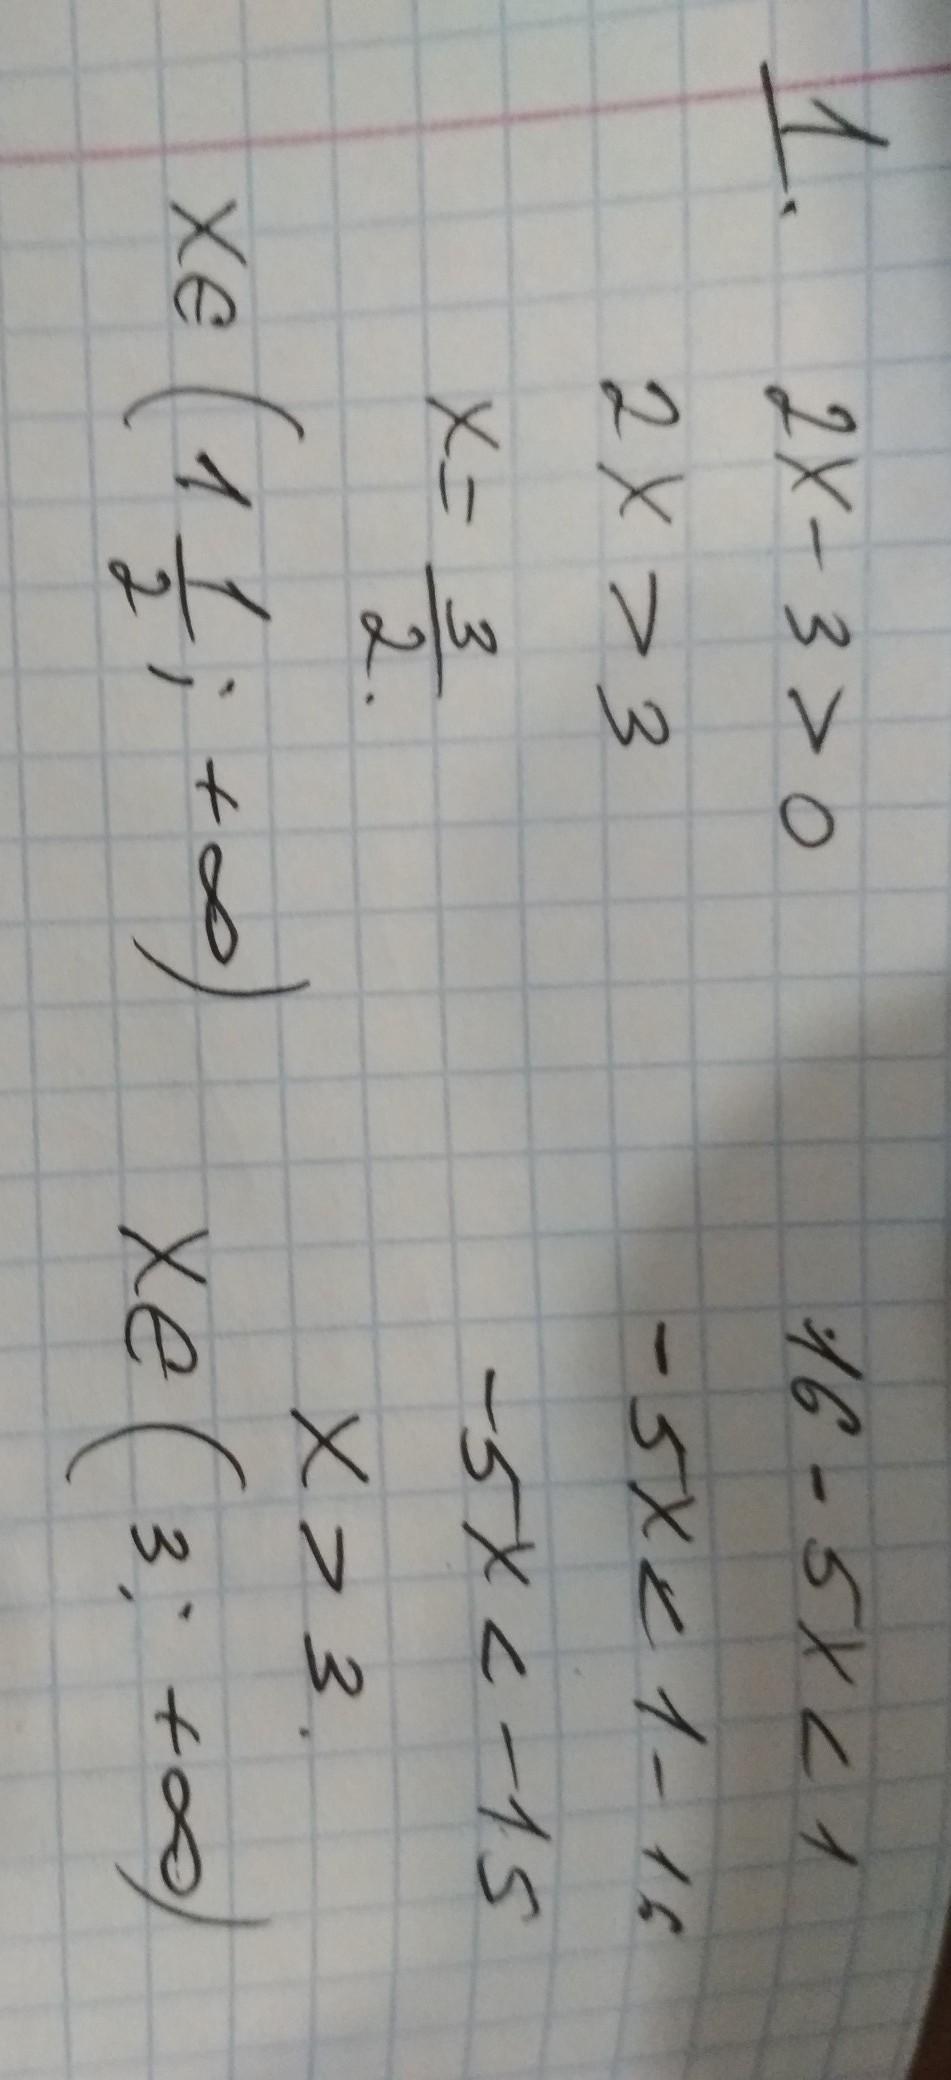 1.
2x - 3 > 0
2x > 3
x = 3/2.
x∈(1 1/2; +∞)
16 - 5x < 1
-5x < 1 - 16
-5x < -15
x > 3.
x∈(3; +∞)